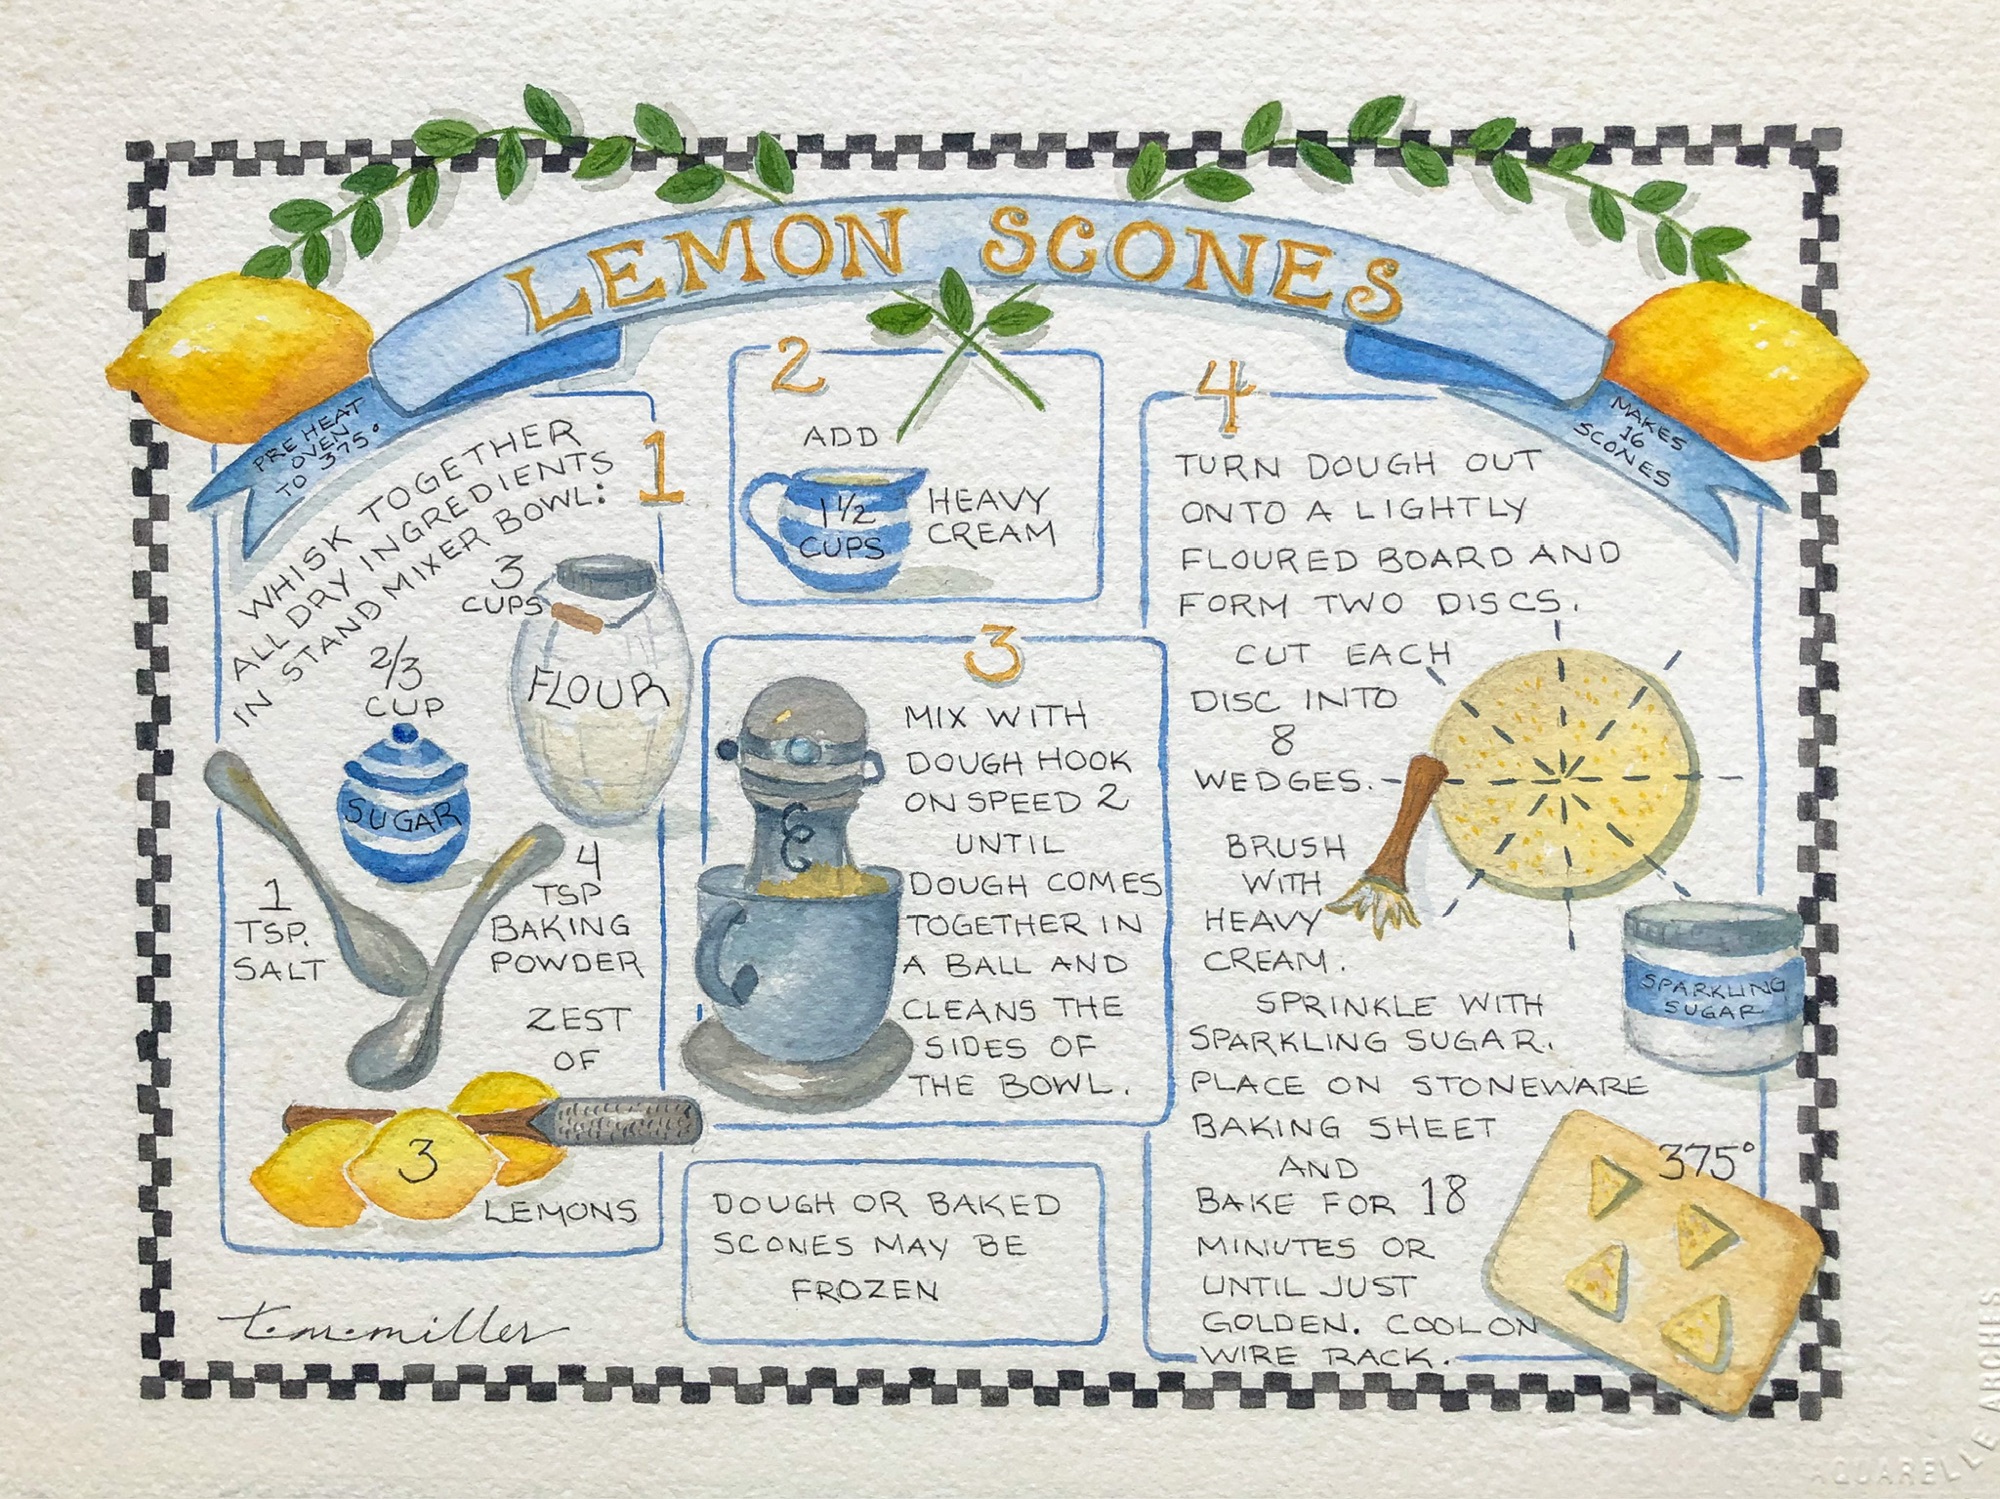 LEMON SCONES
PRE HEAT
OVEN
TO 375°
MAKES
16
SCONES
1
WHISK TOGETHER
ALL DRY INGREDIENTS
IN STAND MIXER BOWL:
3
CUPS
FLOUR
2/3
CUP
SUGAR
1
TSP.
SALT
4
TSP
BAKING
POWDER
ZEST
OF
3
LEMONS
2
ADD
1 1/2
CUPS
HEAVY
CREAM
3
MIX WITH
DOUGH HOOK
ON SPEED 2
UNTIL
DOUGH COMES
TOGETHER IN
A BALL AND
CLEANS THE
SIDES OF
THE BOWL.
DOUGH OR BAKED
SCONES MAY BE
FROZEN
4
TURN DOUGH OUT
ONTO A LIGHTLY
FLOURED BOARD AND
FORM TWO DISCS.
CUT EACH
DISC INTO
8
WEDGES.
BRUSH
WITH
HEAVY
CREAM.
SPRINKLE WITH
SPARKLING SUGAR.
SPARKLING
SUGAR
PLACE ON STONEWARE
BAKING SHEET
AND
BAKE FOR 18
MINUTES OR
UNTIL JUST
GOLDEN. COOL ON
WIRE RACK.
375°
t.m.miller
AQUARELLE ARCHES